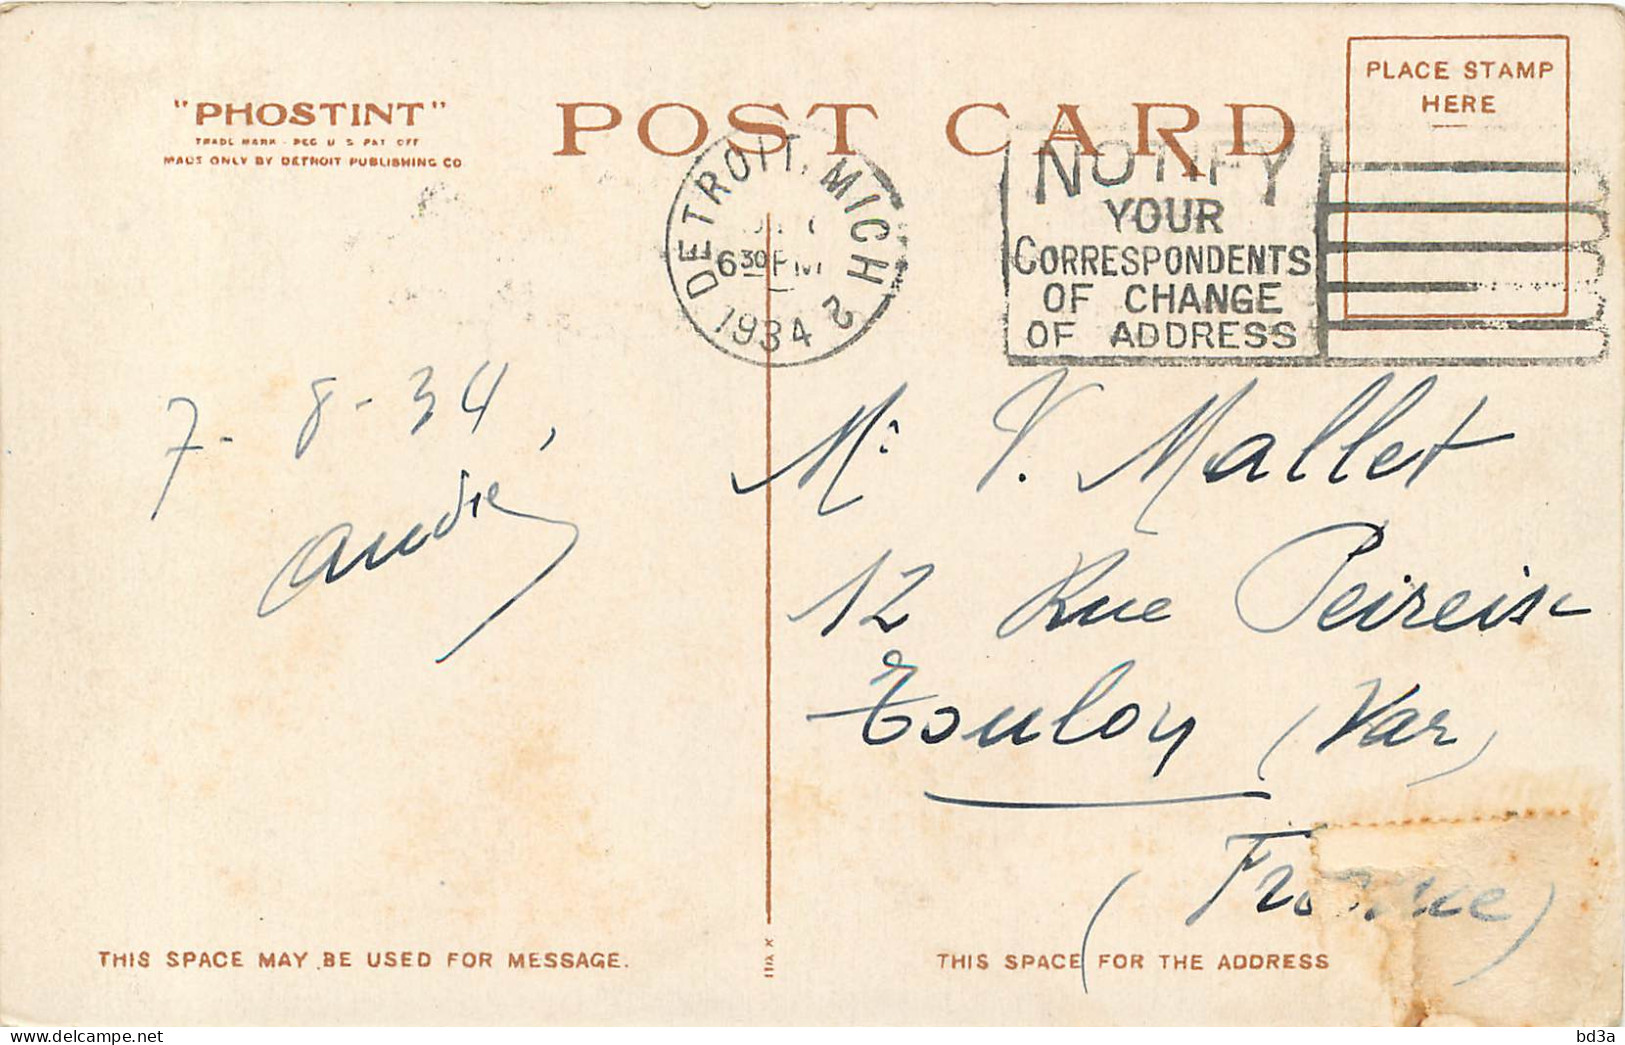 "PHOSTINT"
TRADE MARK - REG U S PAT OFF
MADE ONLY BY DETROIT PUBLISHING CO
POST CARD
PLACE STAMP
HERE
DETROIT, MICH 2
6 30 PM
1934
NOTIFY
YOUR
CORRESPONDENTS
OF CHANGE
OF ADDRESS
7-8-34,
André
Mr V. Mallet
12 Rue Peiresc
Toulon (Var)
(France)
THIS SPACE MAY BE USED FOR MESSAGE.
THIS SPACE FOR THE ADDRESS
bd3a